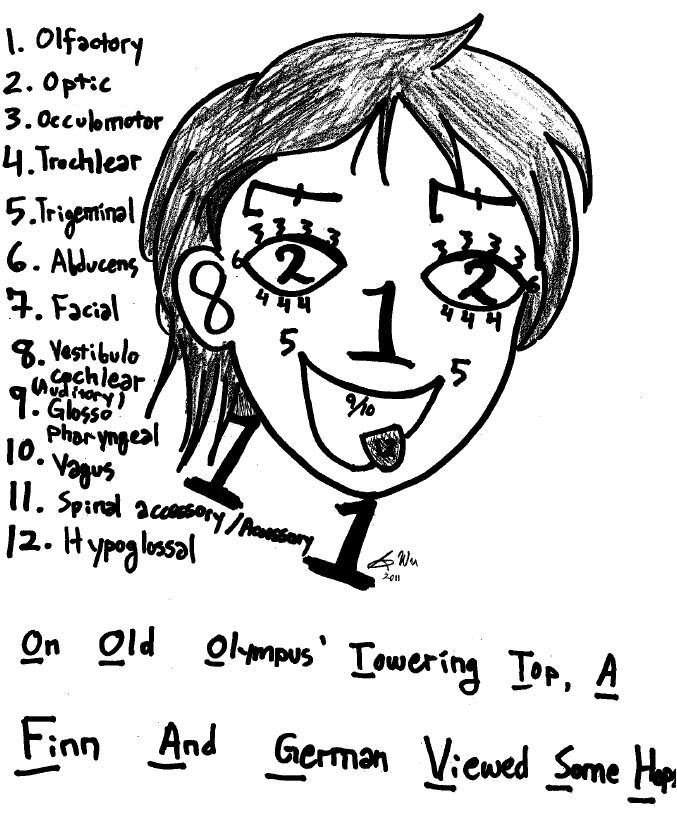 1. Olfactory
2. Optic
3. Occulomotor
4. Trochlear
5. Trigeminal
6. Abducens
7. Facial
8. Vestibulo
cochlear
(Auditory)
9. Glosso
pharyngeal
10. Vagus
11. Spinal accessory/Accessory
12. Hypoglossal
7 7
3 3 3 3 3 3 3 3
6 2 2 6
4 4 4 4 4 4
8
1
5 5
9/10
1 1
Wu
2011
On Old Olympus' Towering Top, A
Finn And German Viewed Some Hops